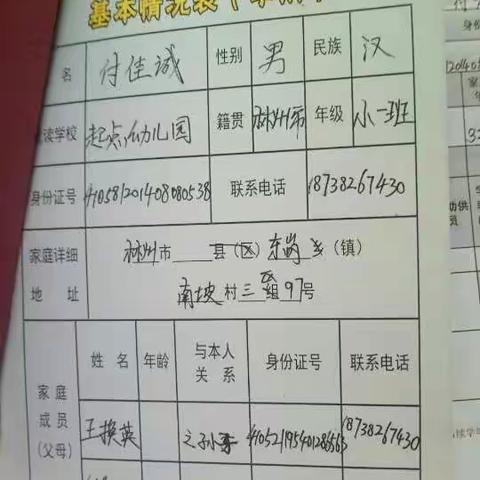 基本情况表
名 付佳诚 性别 男 民族 汉
读学校 起点幼儿园 籍贯 林州市 年级 小一班
身份证号 410581201408080538 联系电话 18738267430
家庭详细 林州市 县（区）东岗乡（镇）
地址 南坡村三区组97号
姓名 年龄 与本人关系 身份证号 联系电话
家庭成员（父母）
王换英 之孙子 18738267430